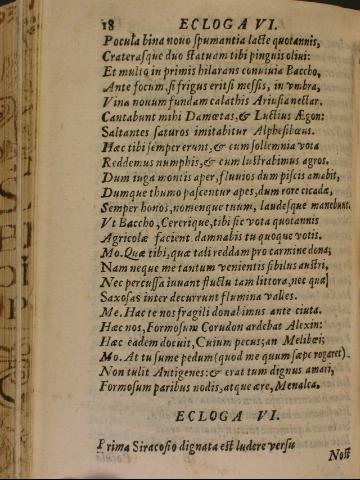 18 ECLOGA VI.
Pocula bina nouo spumantia lacte quotannis,
Craterasque duo statuam tibi pinguis oliui:
Et multo in primis hilarans conuiuia Baccho,
Ante focum, si frigus erit si messis, in vmbra,
Vina nouum fundam calathis Ariusia nectar.
Cantabunt mihi Damœtas, & Luctius Ægon:
Saltantes saturos imitabitur Alphesibœus.
Hæc tibi semper erunt, & cum sollemnia vota
Reddemus numphis, & cum lustrabimus agros.
Dum iuga montis aper, fluuios dum piscis amabit,
Dumque thumo pascentur apes, dum rore cicadæ,
Semper honos, nomenque tuum, laudesque manebunt.
Vt Baccho, Cererique, tibi sic vota quotannis
Agricolæ facient. damnabis tu quoque votis.
Mo. Quæ tibi, quæ tali reddam pro carmine dona;
Nam neque me tantum venientis sibilus austri,
Nec percussa iuuant fluctu tam littora, nec quæ
Saxosas inter decurrunt flumina valles.
Me. Hac te nos fragili donabimus ante ciuta.
Hæc nos, Formosum Corudon ardebat Alexin:
Hæc eadem docuit, Cuium pecus; an Melibœi;
Mo. At tu sume pedum (quod me quum sæpe rogaret)
Non tulit Antigenes: & erat tum dignus amari,
Formosum paribus nodis, atque ære, Menalca.
ECLOGA VI.
Prima Siracosio dignata est ludere versu
Nost